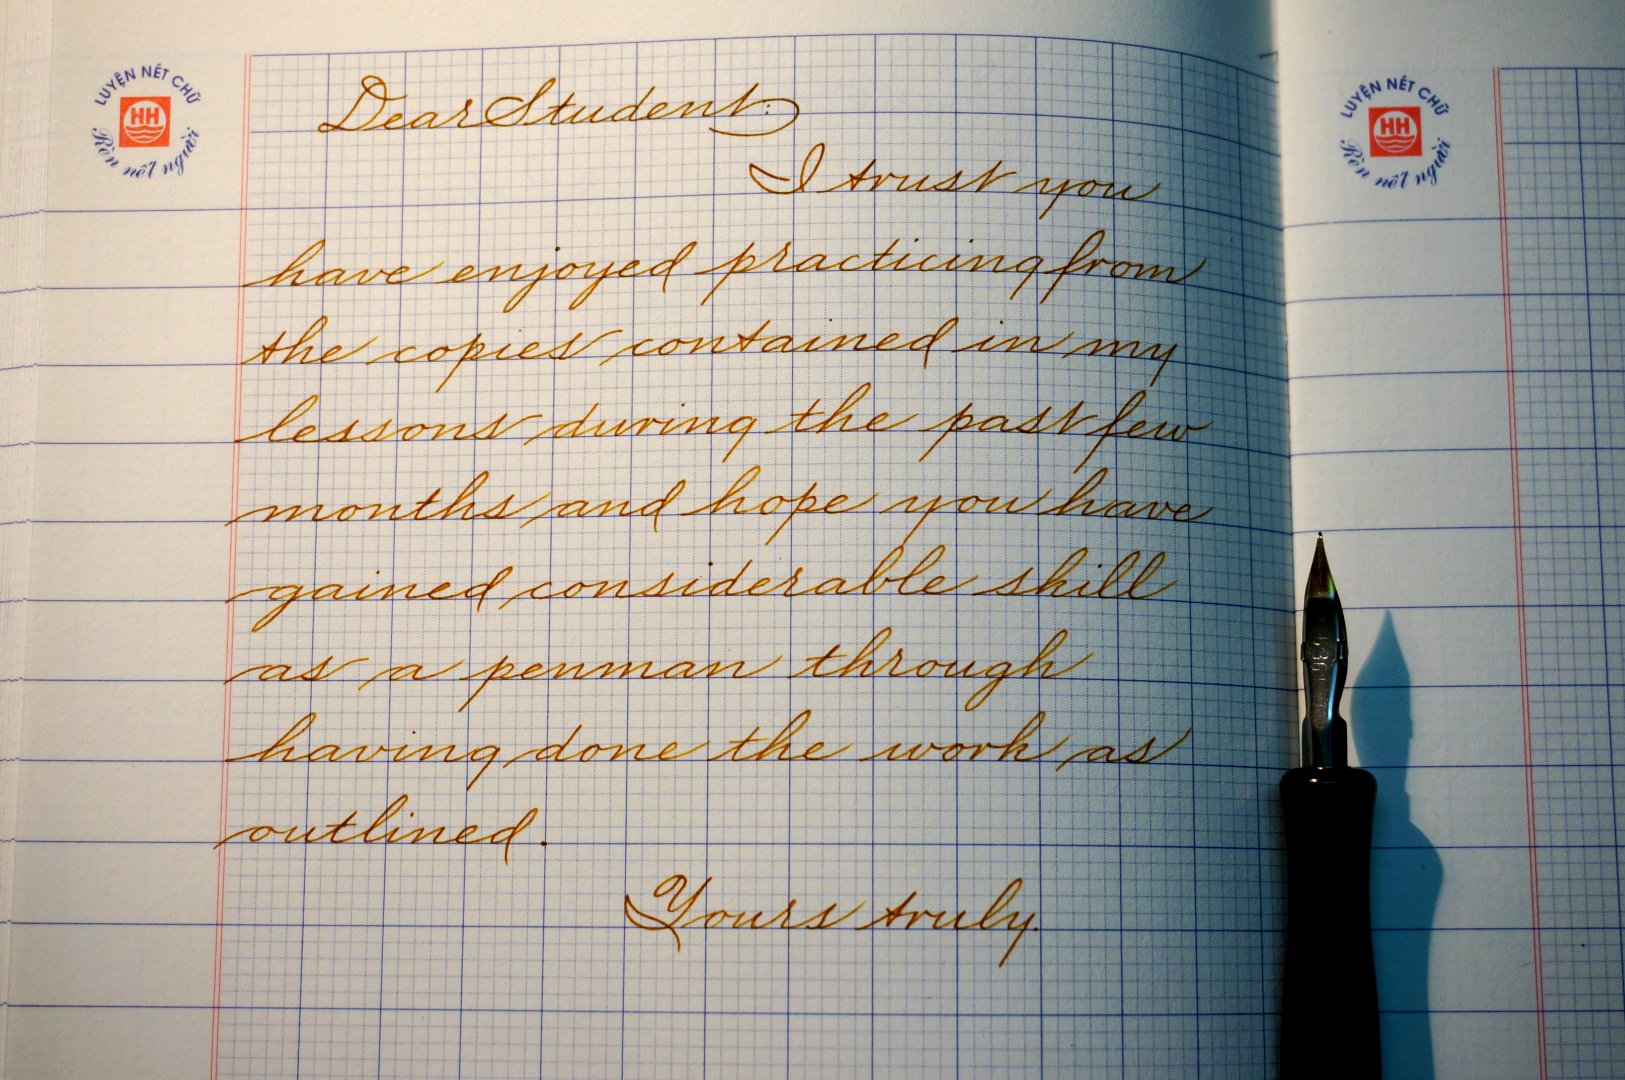 LUYỆN NÉT CHỮ
HH
Rèn nết người
Dear Student:
I trust you
have enjoyed practicing from
the copies contained in my
lessons during the past few
months and hope you have
gained considerable skill
as a penman through
having done the work as
outlined.
Yours truly.
LUYỆN NÉT CHỮ
HH
Rèn nết người